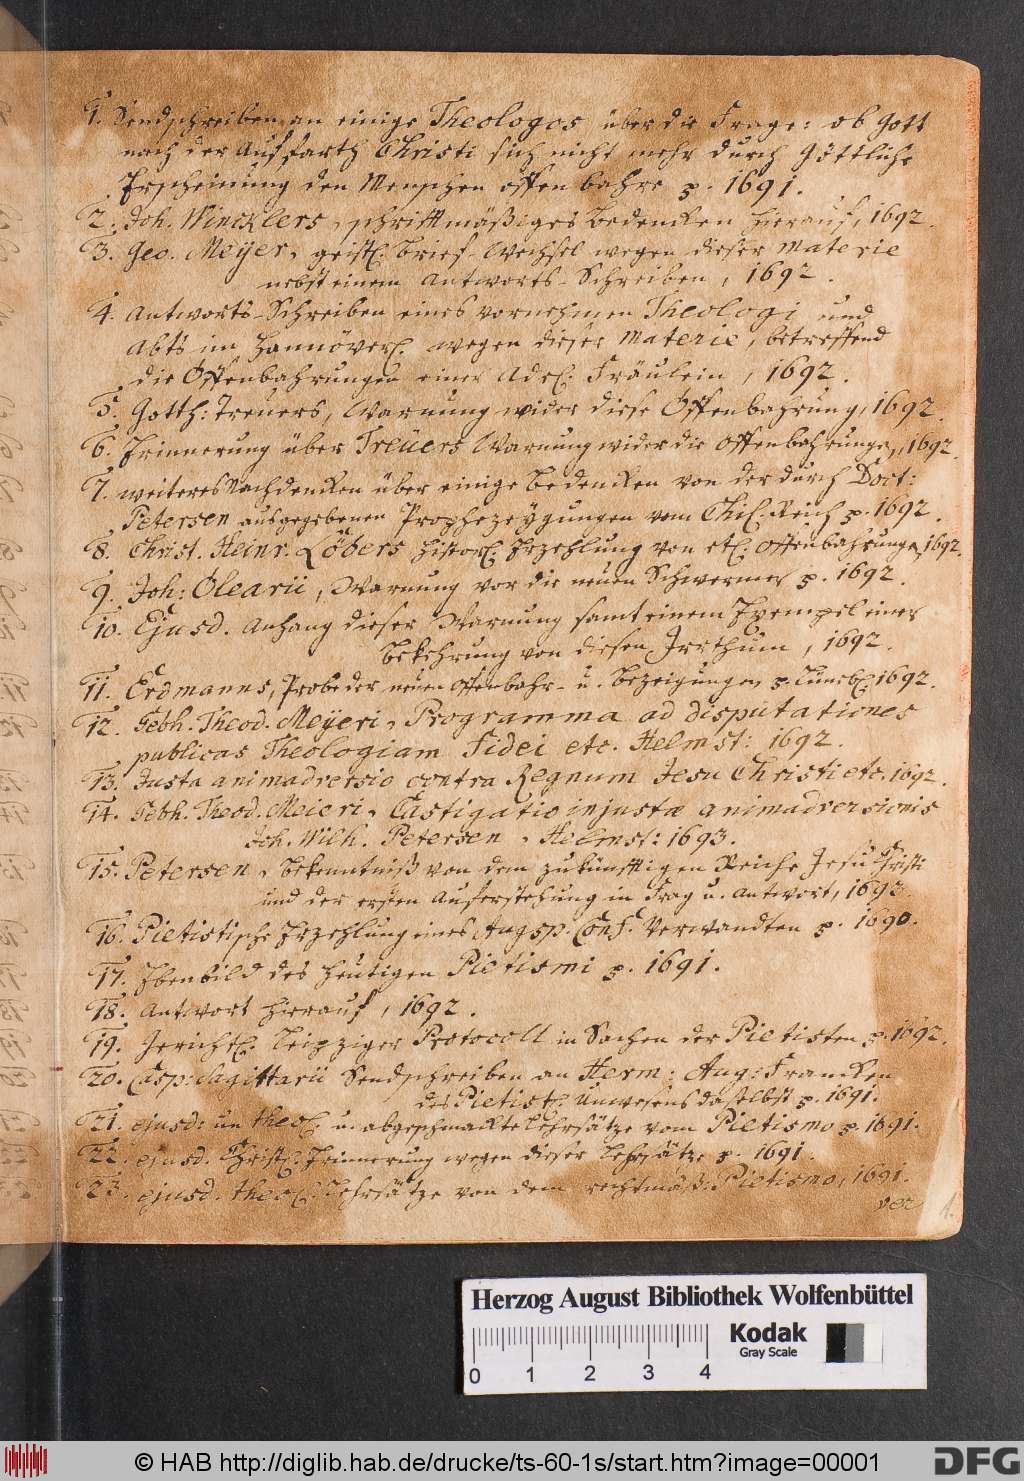 1. Sendschreiben an einige Theologos über die Frage: ob Gott
nach der Auffarth Christi sich nicht mehr durch Göttliche
Erscheinung den Menschen offenbahre p. 1691.
2. Joh. Wincklers, schrifftmäßiges Bedencken hierauf, 1692.
3. Geo. Meÿer, geistl. Brief-Wechsel wegen dieser Materie
nebst einem Antworts-Schreiben, 1692.
4. Antworts-Schreiben eines vornehmen Theologi und
Abts im Hannöver. wegen dieser Materie, betreffend
die Offenbahrungen einer Adel. Fräulein, 1692.
5. Gotth: Treuers, Warnung wider diese Offenbahrung, 1692.
6. Erinnerung über Treüers Warnung wider die Offenbahrungen, 1692.
7. weiteres Nachdencken über einige Bedencken von der durch Doct:
Petersen ausgegebenen Prophezeÿgungen vom Chil. Reich p. 1692.
8. Christ. Heinr. Löbers histor. Erzehlung von etl. Offenbahrungen, 1692.
9. Joh: Olearii, Warnung vor die neuen Schwermer p. 1692.
10. Ejusd. Anhang dieser Warnung samt einem Exempel einer
Bekehrung von diesen Irrthum, 1692.
11. Erdmanns, Probe der neuen Offenbahr- u. Bezeigungen p. Lüneb. 1692.
12. Gebh. Theod. Meÿeri, Programma ad disputationes
publicas Theologiam Fidei etc. Helmst: 1692.
13. Justa animadversio contra Regnum Jesu Christi etc. 1692.
14. Gebh. Theod. Meieri, Castigatio injustæ animadversionis
Joh. Wilh. Petersen, Helmst: 1693.
15. Petersen, Bekenntniß von dem zukünfftigen Reiche Jesu Christi
und der ersten Auferstehung in Frag u. Antwort, 1693
16. Pietistische Erzehlung eines Augsp. Conf. Verwandten p. 1690.
17. Ebenbild des heutigen Pietismi p. 1691.
18. Antwort hierauf, 1692.
19. Gerichtl. Leipziger Protocoll in Sachen der Pietisten p. 1692.
20. Casp: Sagittarii Sendschreiben an Herm: Aug: Francken
des Pietist. Unwesens daselbst p. 1691.
21. ejusd: untheol. u. abgeschmackte Lehrsätze vom Pietismo p. 1691.
22. ejusd. Christl. Erinnerung wegen dieser Lehrsätze p. 1691.
23. ejusd. theol. Lehrsätze von dem rechtmäß: Pietismo, 1691.
ver
1.
Herzog August Bibliothek Wolfenbüttel
Kodak
Gray Scale
0 1 2 3 4
© HAB http://diglib.hab.de/drucke/ts-60-1s/start.htm?image=00001
DFG